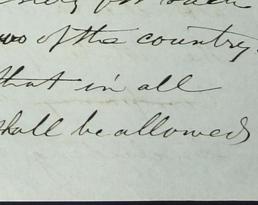 of the country
that in all
shall be allowed